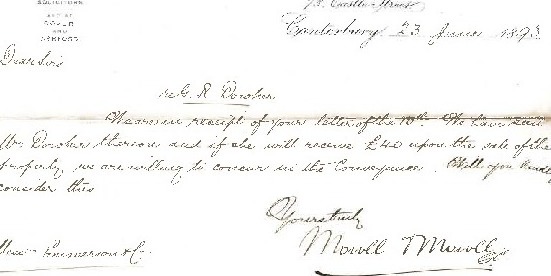 SOLICITORS
AND AT
DOVER
AND
ASHFORD
Castle Street
Canterbury 23 June 1893
Dear Sir
re G. R. Dorsher
We are in receipt of your letter of the 10th. We have seen
Mr Dorsher thereon and if she will receive £40 upon the sale of the
property we are willing to concur in the Conveyance. Will you kindly
consider this
Yours truly
Mowll & Mowll
Messrs Emmerson & Co